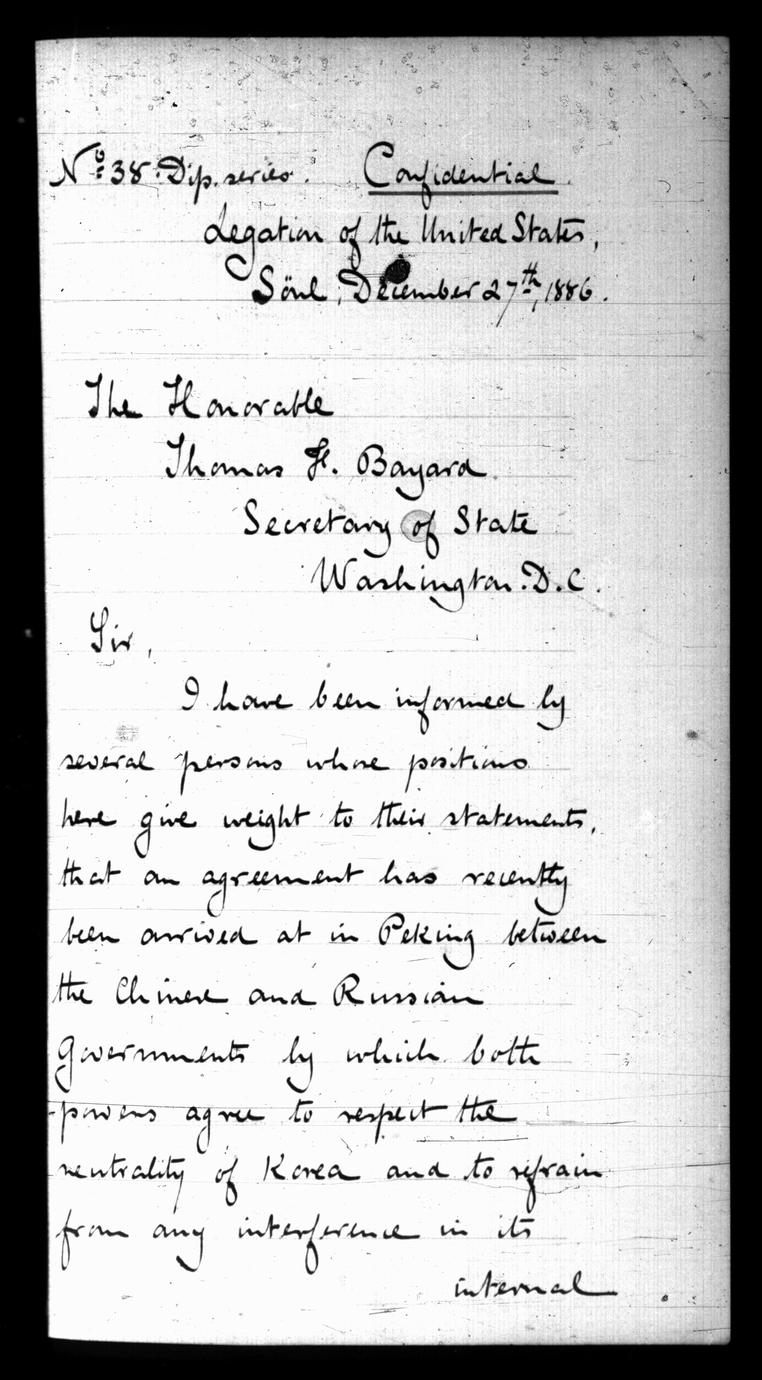 Nº 38. Dip. series. Confidential.
Legation of the United States,
Söul, December 27th, 1886.
The Honorable
Thomas F. Bayard
Secretary of State
Washington. D. C.
Sir,
I have been informed by
several persons whose positions
here give weight to their statements,
that an agreement has recently
been arrived at in Peking between
the Chinese and Russian
Governments by which both
powers agree to respect the
neutrality of Korea and to refrain
from any interference in its
internal